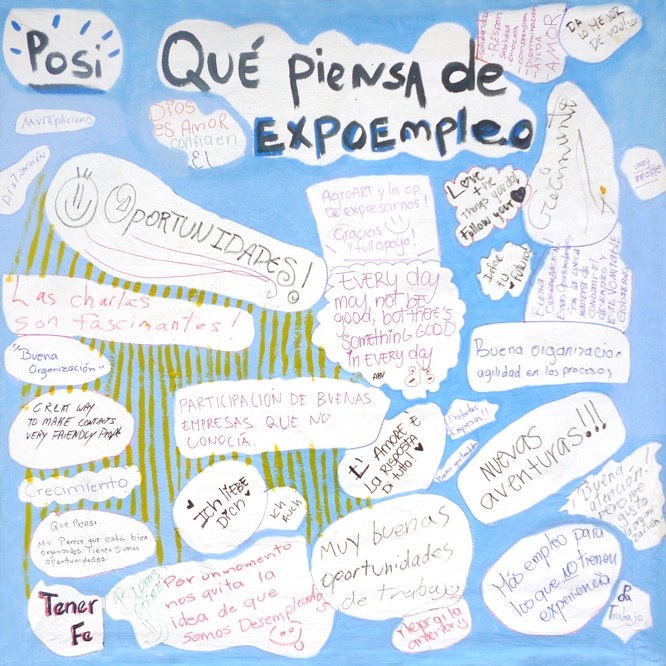 Posi
QUÉ PIENSA de
EXPOEMPLEO
DIOS
ES AMOR
CONFIA EN
ÉL
AMOR
AYUDA
DA
LO MEJOR
Crecimiento
OPORTUNIDADES!
AgroART y la op.
de expresarnos!
Gracias
y full apoyo!
Love
the
things you do!
Follow your
Las charlas
son fascinantes!
EVERY day
may not be
good, but there's
something GOOD
in EVERY day
"Buena
Organización"
Buena organización
agilidad en los procesos
GREAT WAY
TO MAKE CONTACTS
VERY FRIENDLY People
PARTICIPACIÓN DE BUENAS
EMPRESAS QUE NO
CONOCÍA.
L'AMORE È
LA RISPOSTA
DI TUTTO!
Excelentes
Empresas!!
NUEVAS
aventuras!!!
Crecimiento
Ich liebe
Dich
Ich
Auch
Buena
atención!
Que Pensi
Me Parece que está bien
organizados. Tienen buenas
oportunidades.
Muy buenas
oportunidades
de trabajo
Más empleo para
los que no tienen
experiencia
Tener
Fe
Por un momento
nos quita la
idea de que
somos Desempleados
Trabajo